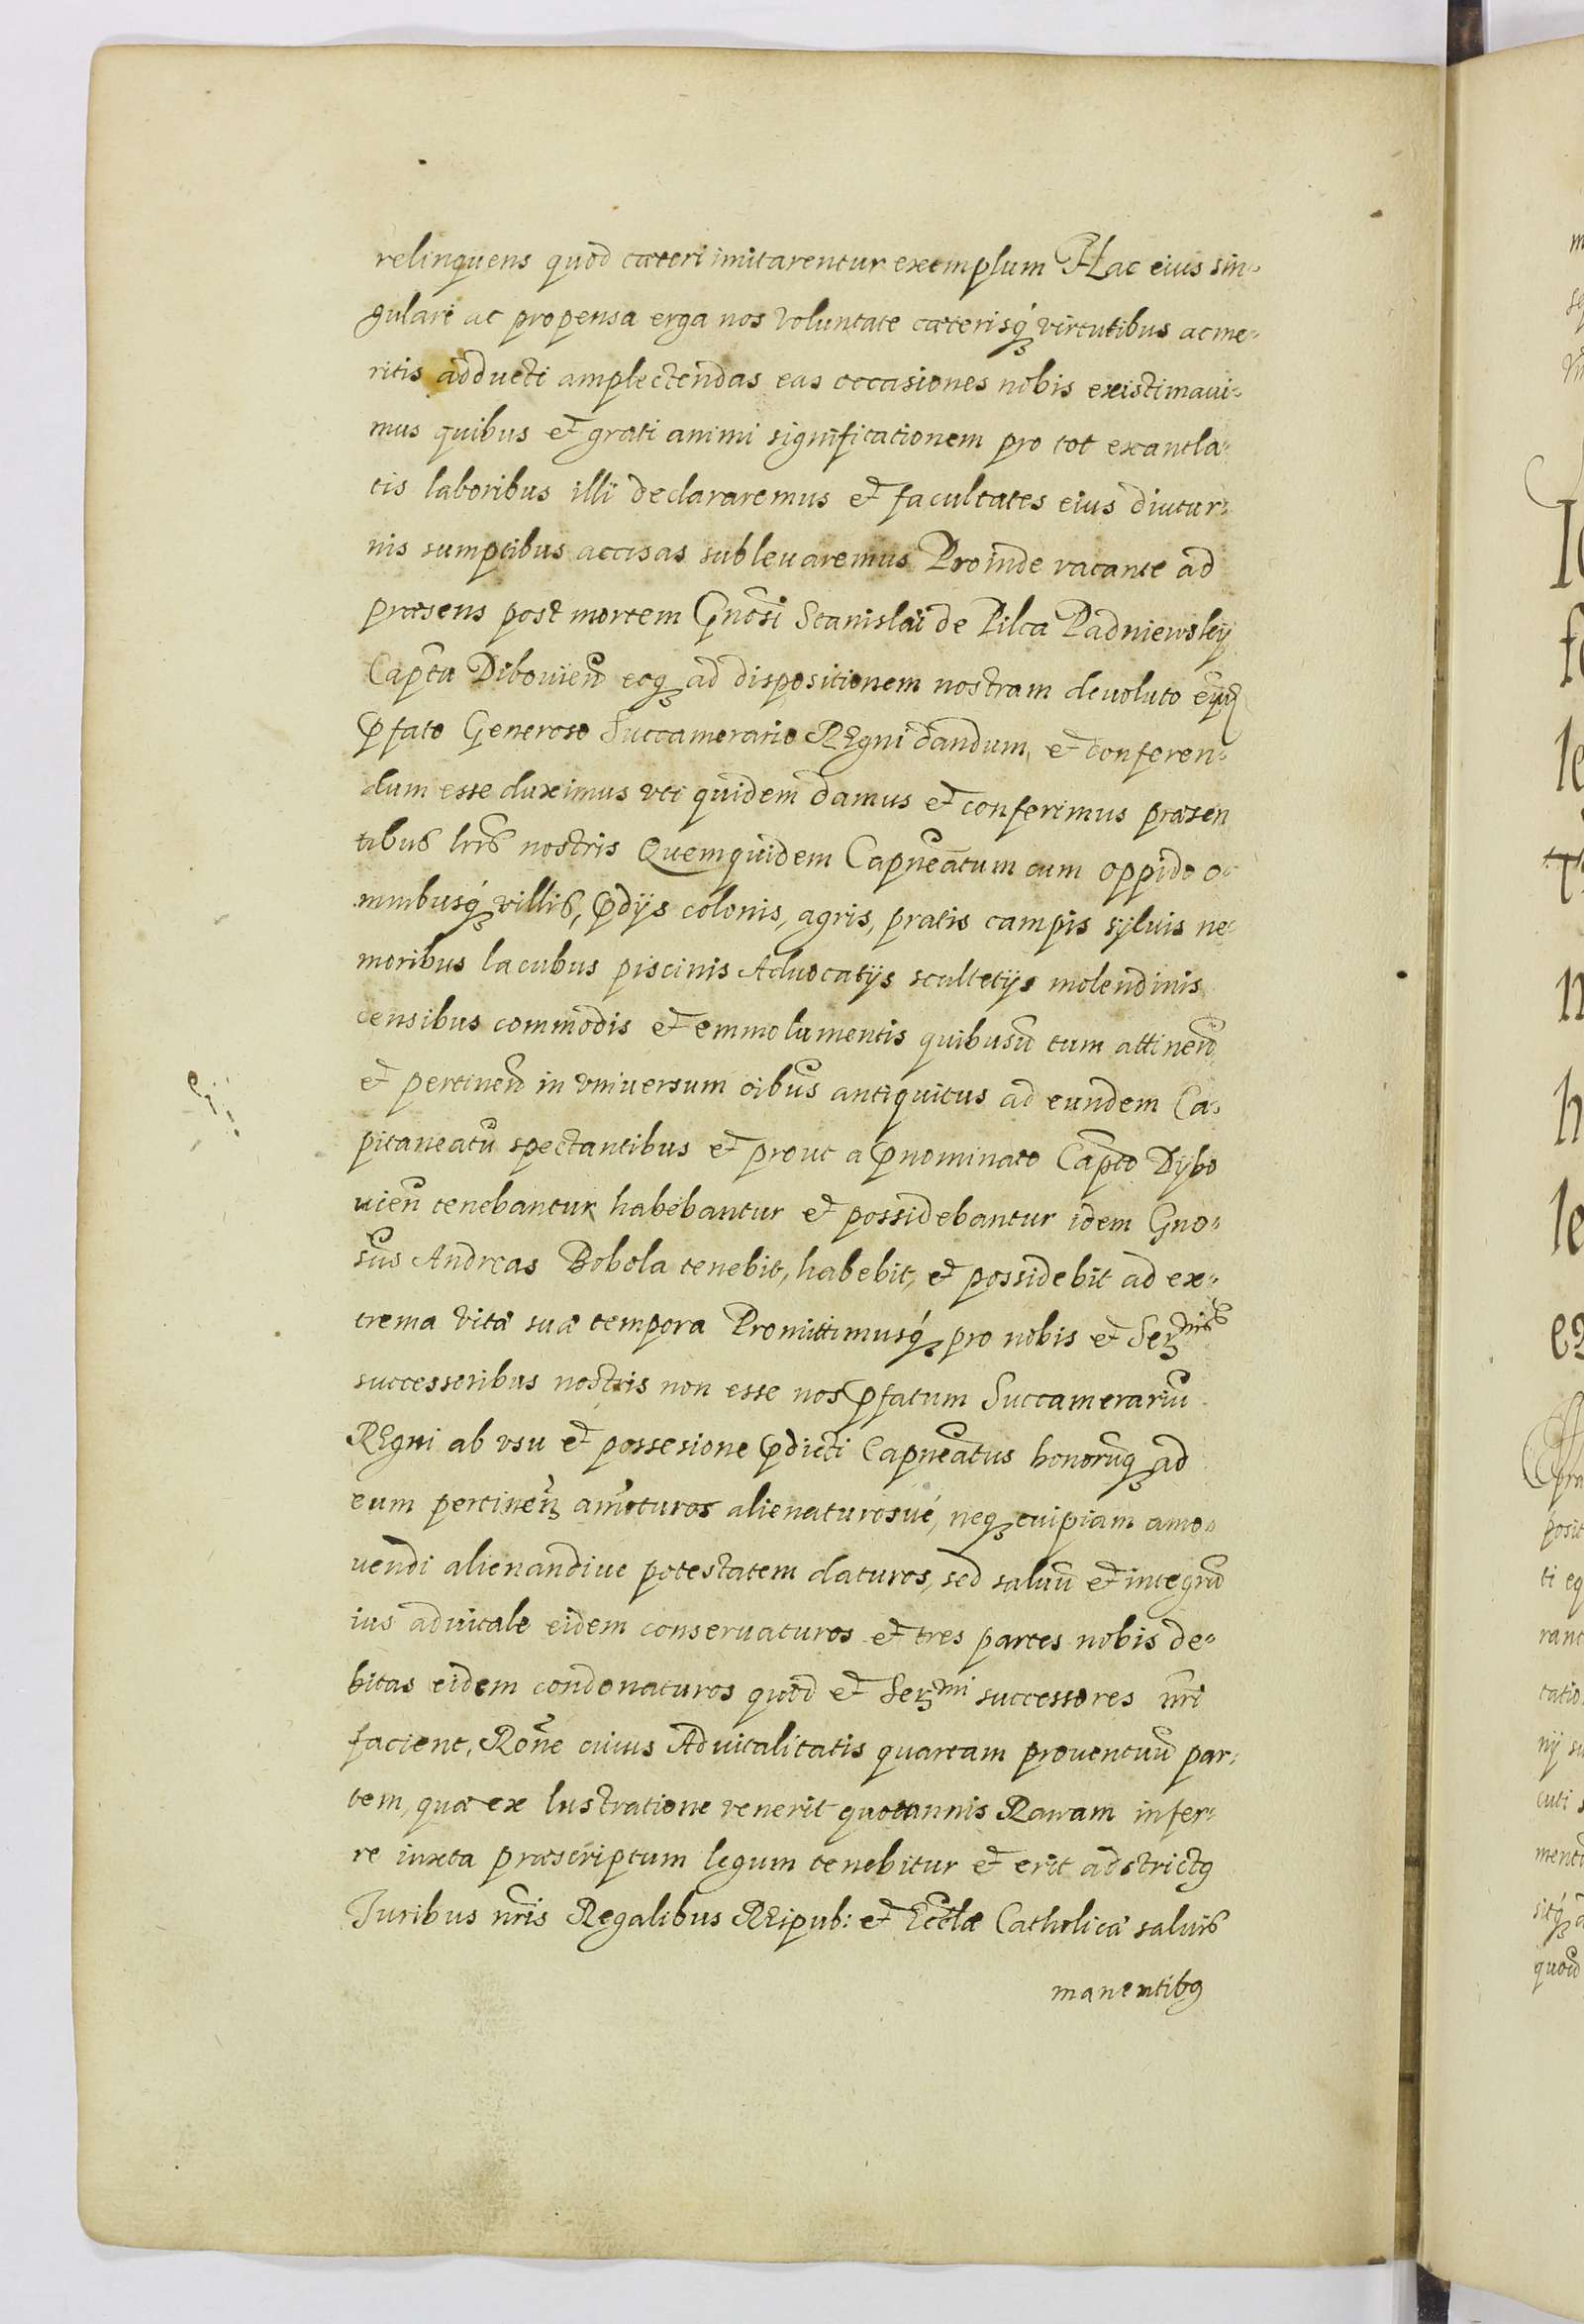 relinquens quod cæteri imitarentur exemplum Hac eius sin-
gulari ac propensa erga nos voluntate cæterisq́ꝫ virtutibus ac me-
ritis adducti amplectendas eas occasiones nobis existimaui-
mus quibus et grati animi significationem pro tot exantla-
tis laboribus illi declararemus et facultates eius diutur-
nis sumptibus accisas subleuaremus Proinde vacante ad
præsens post mortem Gn̄osi Stanislai de Pilca Padniewsky
Cap̄tu Dibouien̄ eoqꝫ ad dispositionem nostram deuoluto
p̄fato Generoso Succamerario REgni dandum, et conferen-
dum esse duximus uti quidem damus et conferimus præsen
tibus lr̄is nostris Quemquidem Capn̄eatum cum oppido o-
mnibusq́ꝫ villis, p̄dijs colonis, agris, pratis campis syluis ne-
moribus lacubus piscinis Aduocatijs scultetijs molendinis
censibus commodis et emmolumentis quibusū tum attinen̄
et pertinen̄ in vniuersum oībus antiquitus ad eundem Ca-
pitaneatū spectantibus et prout a p̄nominato Cap̄to Dybo
uien̄ tenebantur habebantur et possidebantur idem Gn̄o-
sus Andreas Bobola tenebit, habebit, et possidebit ad ex-
trema vitæ suæ tempora Promittimusq́ꝫ pro nobis et Serꝫ^nis
successoribus nostris non esse nos p̄fatum Succamerariū
REgni ab vsu et possesione p̄dicti Capn̄eatus bonorūqꝫ ad
eum pertinen̄ amoturos alienaturosué, neqꝫ cuipiam amo-
uendi alienandiue potestatem daturos, sed saluū et integrū
ius aduitale eidem conseruaturos et tres partes nobis de-
bitas eidem condonaturos quod et Serꝫ^mi successores nr̄i
facient, Ron̄e cuius Aduitalitatis quartam prouentuū par-
tem, quæ ex lustratione venerit quotannis Rauam infer-
re iuxta præscriptum legum tenebitur et erit adstrictꝰ
Juribus nr̄is Regalibus REipub: et Eccl̄æ Catholicæ saluis
manentibꝰ